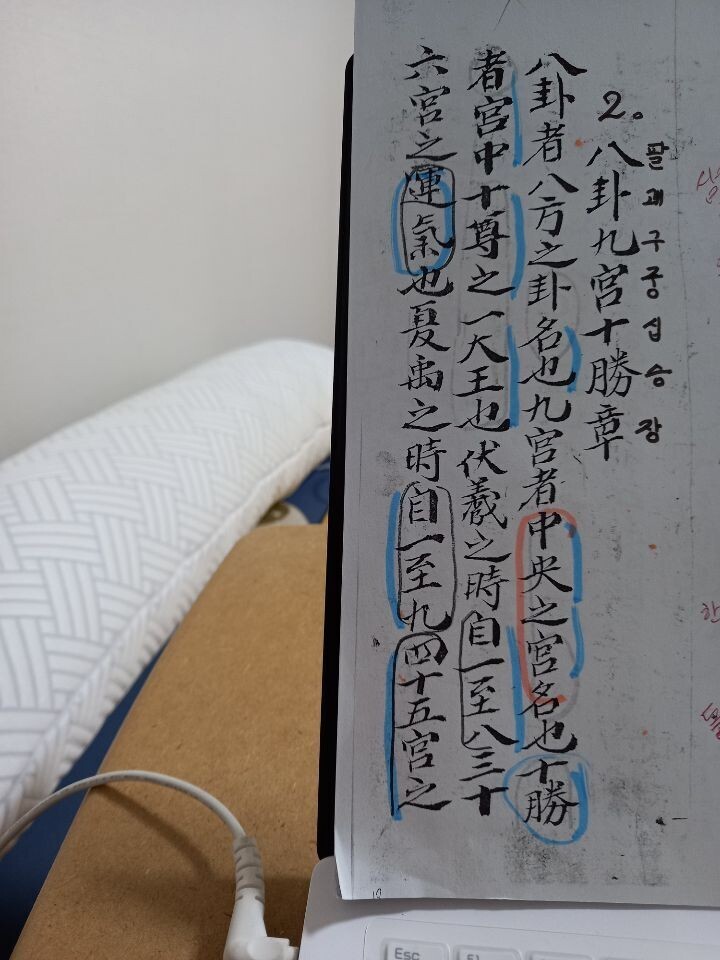 팔괘구궁십승장
2。八卦九宮十勝章
八卦者八方之卦名也九宮者中央之宮名也十勝
者宮中十尊之一大王也伏羲之時自一至八三十
六宮之運氣也夏禹之時自一至九四十五宮之
Esc